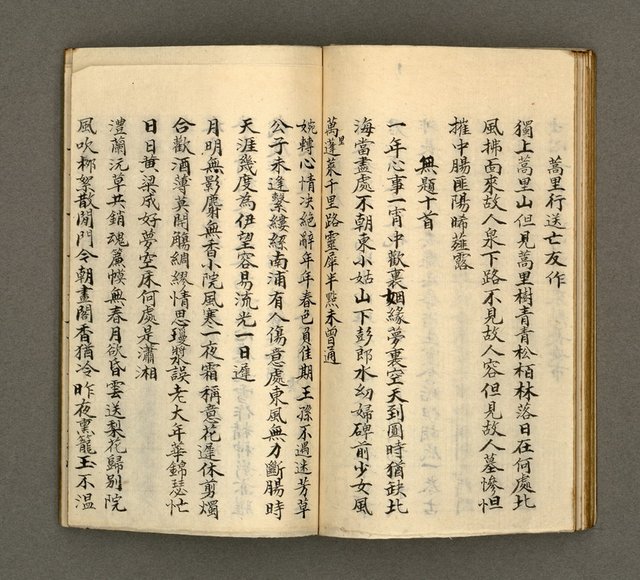 蒿里行送亡友作
獨上蒿里山但見蒿里樹青青松栢林落日在何處北
風拂面來故人泉下路不見故人容但見故人墓慘怛
摧中腸匪陽晞薤露
無題十首
一年心事一宵中歡裏姻緣夢裏空天到圓時猶缺北
海當盡處不朝東小姑山下彭郎水幼婦碑前少女風
萬里蓬萊千里路靈犀半點未曾通
婉轉心情决絕辭年年春色負佳期王孫不遇迷芳草
公子未逢繫縷絲南浦有人傷意處東風無力斷腸時
天涯幾度為伊望容易流光一日遲
月明無影麝無香小院風寒一夜霜稱意花遲休剪燭
合歡酒薄莫開觴綢繆情思瓊漿誤老大年華錦瑟忙
日日黄梁成好夢空床何處是瀟湘
澧蘭沅草共銷魂簾幙無春月欲昏雲送梨花歸别院
風吹柳絮散閒門今朝畫閣香猶冷昨夜熏籠玉不温